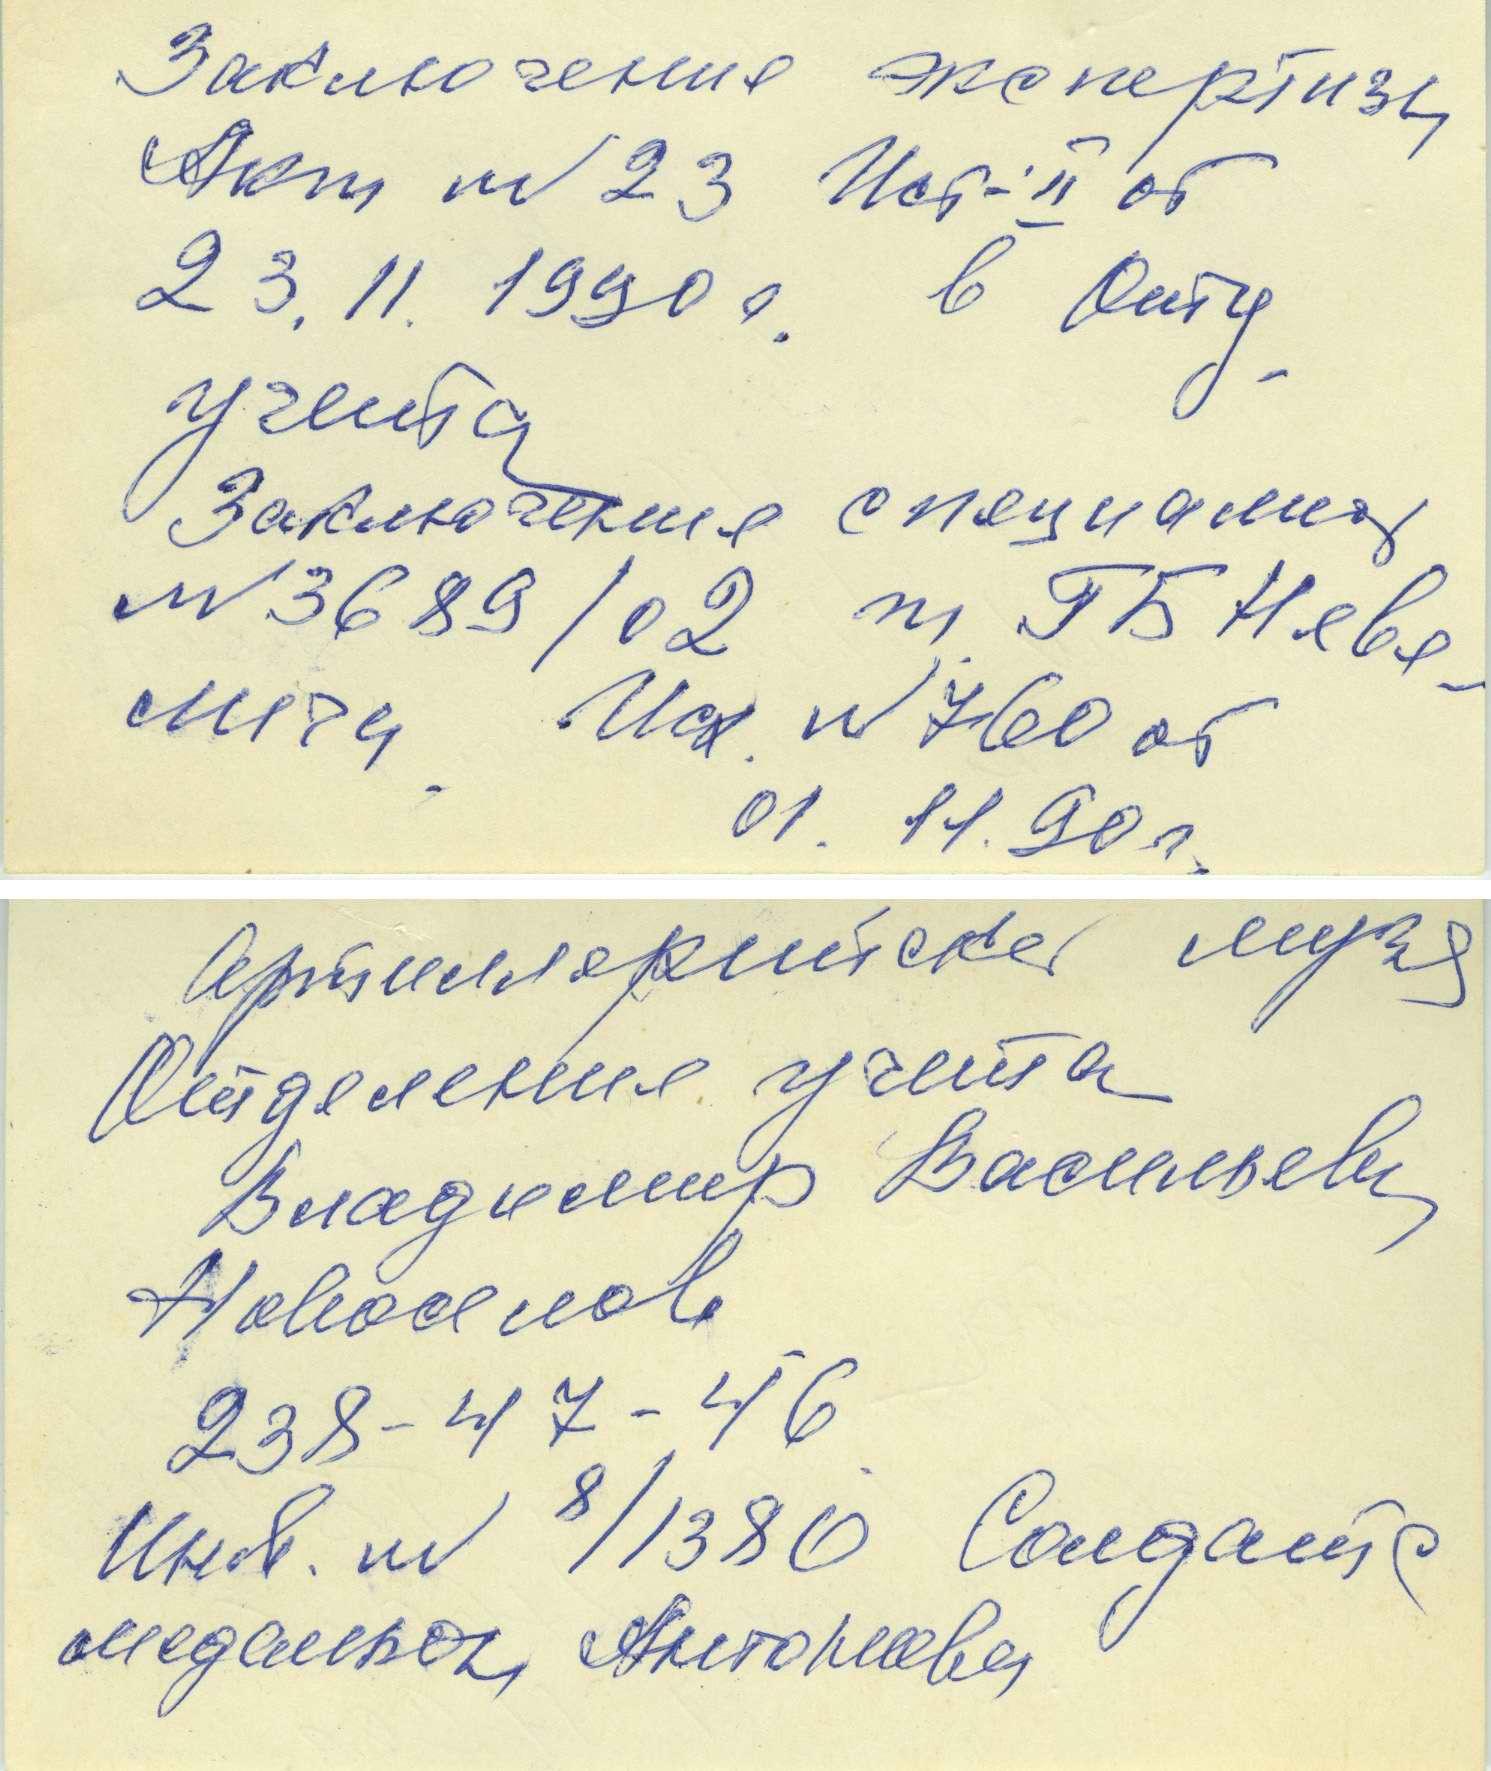 Заключение экспертизы
Акт № 23 Ист-II от
23.11.1990 г. в Отд.
учета
Заключение специалист
№ 3689/02 т. ГБ Невя-
мечу. Исх. № 760 от
01.11.90 г.
Артиллерийский музей
Отделение учета
Владимир Васильевич
Новоселов
238-47-46
Инв. № 8/1380 Солдатс
медальон Антонова